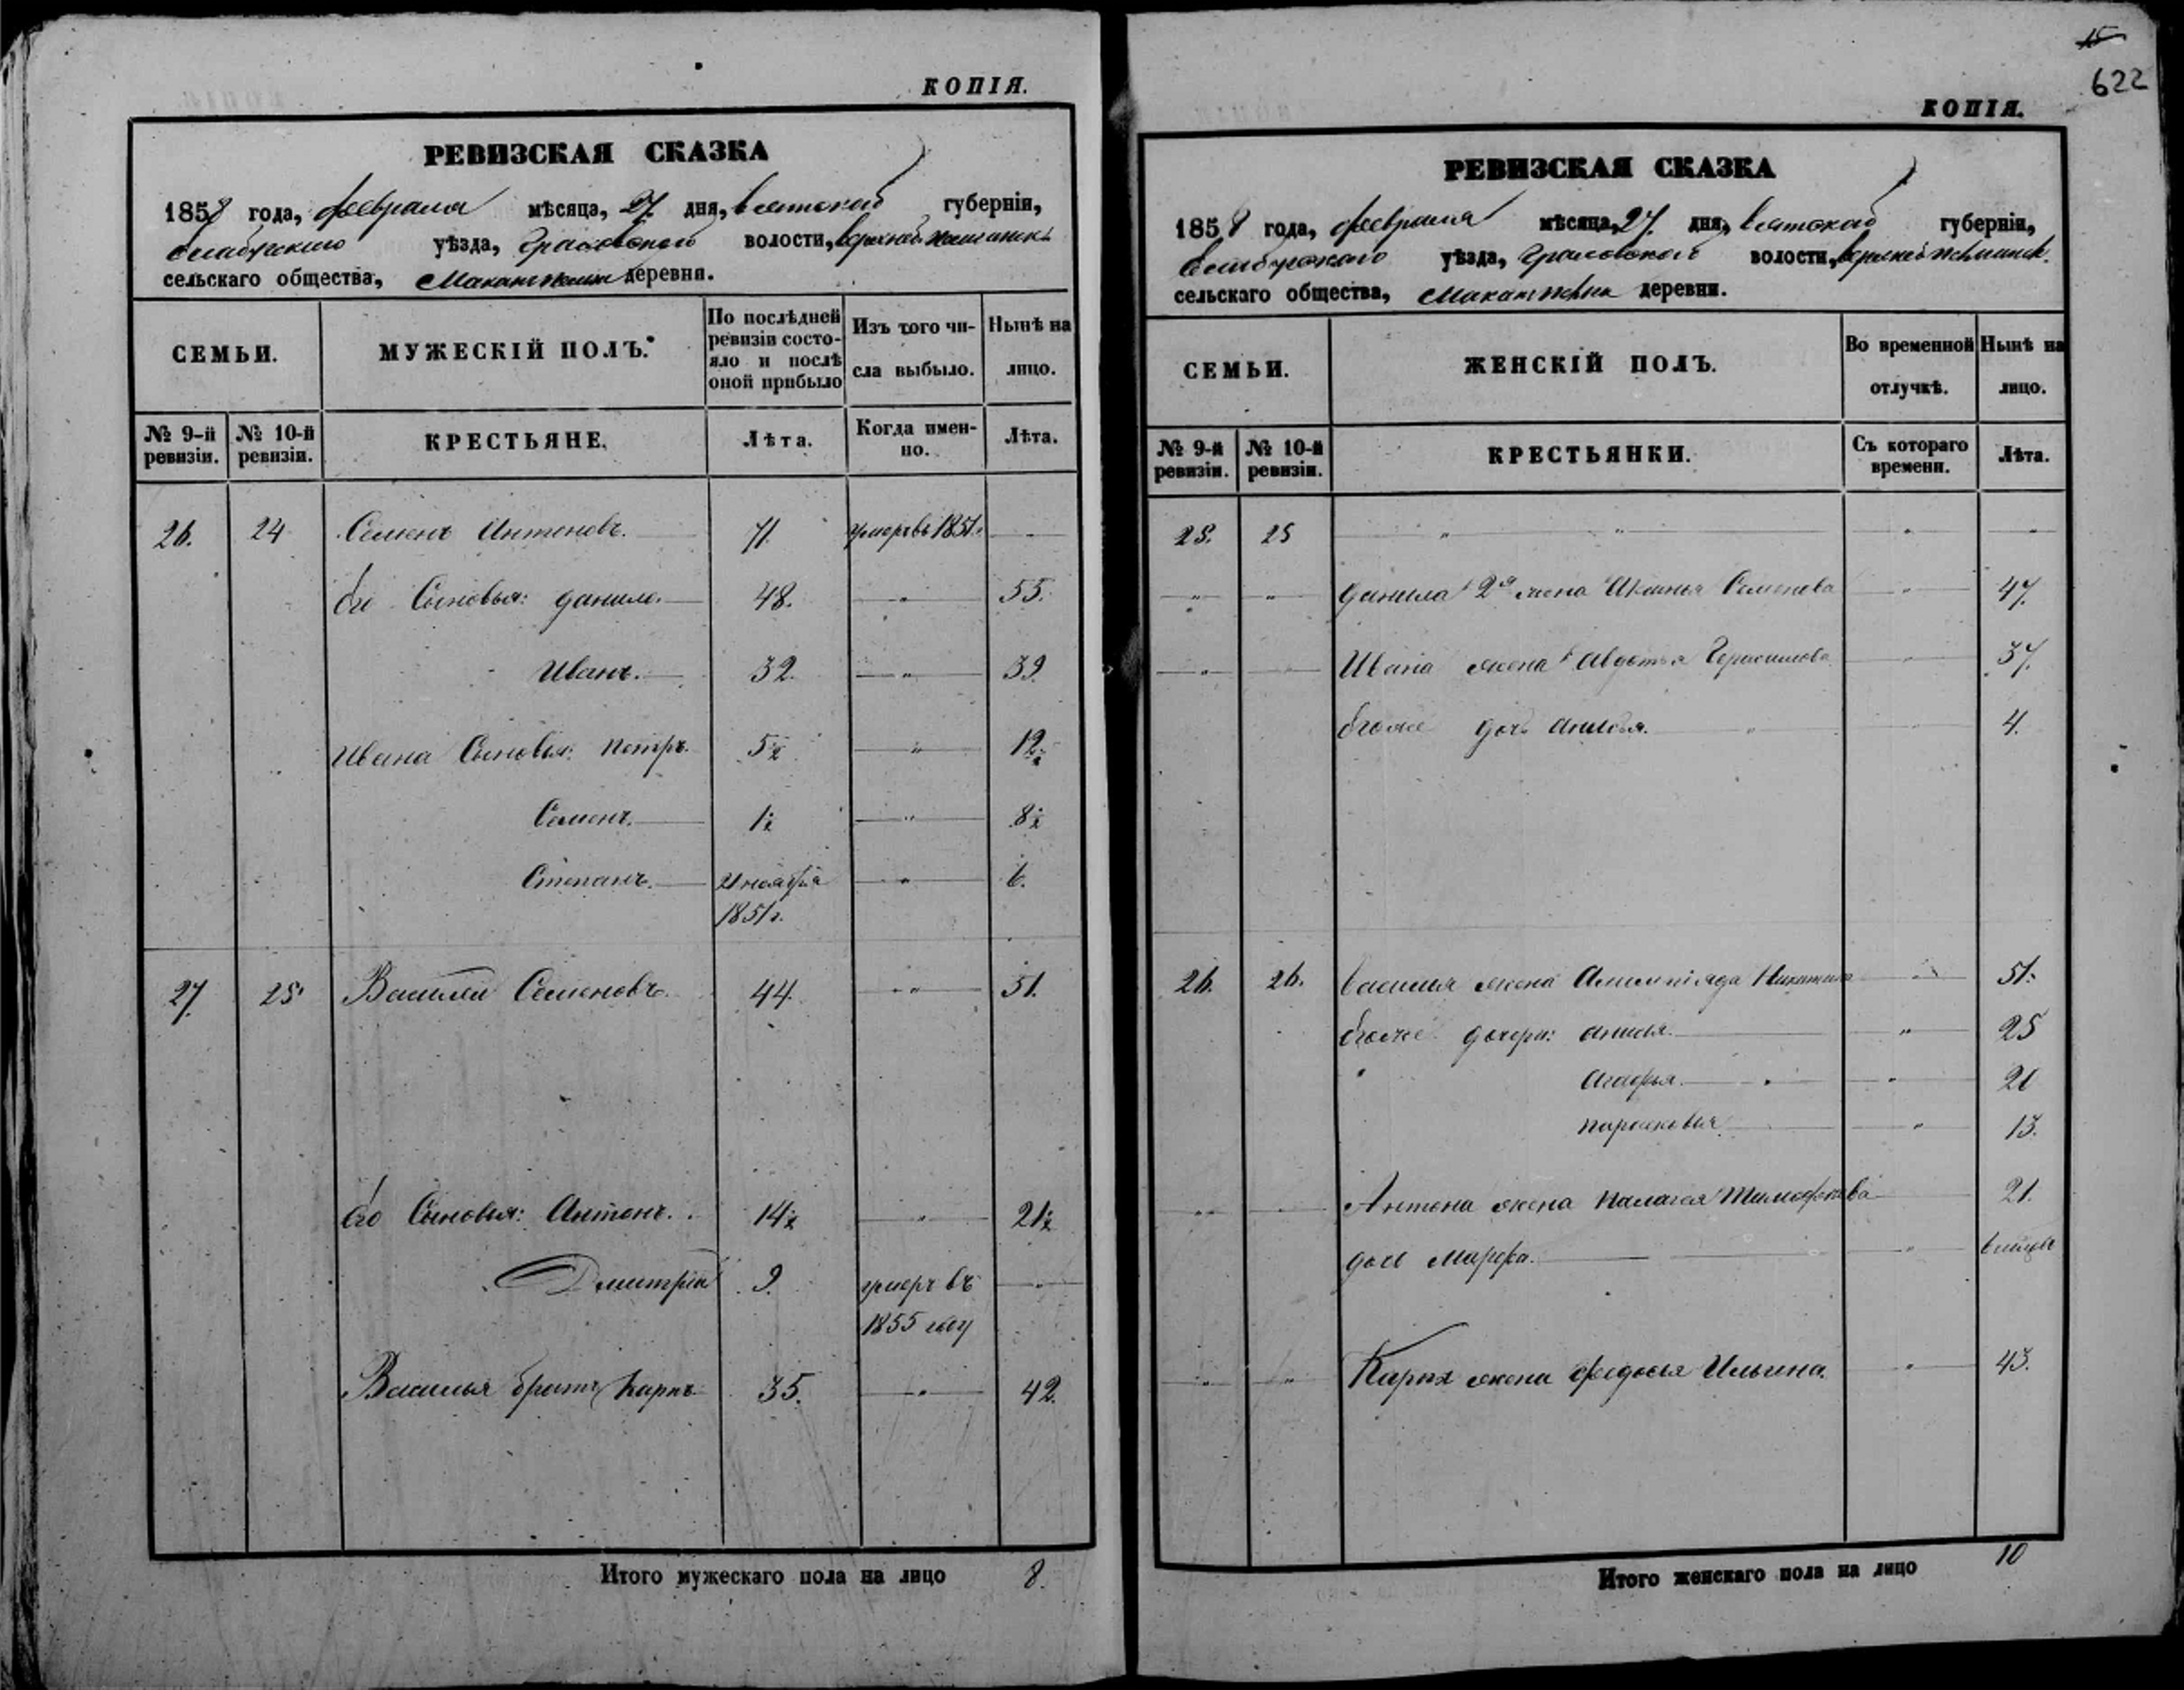 КОПІЯ.
РЕВИЗСКАЯ СКАЗКА
1858 года, февраля мѣсяца, 27 дня, вятской губерніи,
уѣзда, волости,
сельскаго общества, деревня.
СЕМЬИ.
МУЖЕСКІЙ ПОЛЪ.
По послѣдней ревизіи состояло и послѣ оной прибыло
Изъ того числа выбыло.
Нынѣ на лицо.
№ 9-й ревизіи.
№ 10-й ревизіи.
КРЕСТЬЯНЕ.
Лѣта.
Когда именно.
Лѣта.
26. 24 Семенъ Антоновъ. 71. умеръ въ 1851.
Его Сыновья: данило. 48. 55.
Иванъ. 32. 39.
Ивана Сыновья: петръ. 5½ 12½
Семенъ. 1½ 8½
Степанъ. 21 ноября 6.
1851 г.
27. 25 Василей Семеновъ. 44. 51.
Его Сыновья: Антонъ. 14½ 21½
Дмитрій 9. умеръ въ
1855 году
Василья братъ Карпъ 35. 42.
Итого мужескаго пола на лицо 8.
15
622
КОПІЯ.
РЕВИЗСКАЯ СКАЗКА
1858 года, февраля мѣсяца, 27. дня, вятской губерніи,
уѣзда, волости,
сельскаго общества, деревни.
СЕМЬИ.
ЖЕНСКІЙ ПОЛЪ.
Во временной отлучкѣ.
Нынѣ на лицо.
№ 9-й ревизіи.
№ 10-й ревизіи.
КРЕСТЬЯНКИ.
Съ котораго времени.
Лѣта.
25. 25
данила 2я жена Акинья Семенова 47.
Ивана жена Авдотья Герасимова 37.
Егоже дочь 4.
26. 26. Василья жена 51.
Егоже дочери: 25
Агафья. 20
парасковья 13.
Антона жена палагея Тимофеева 21.
дочь Марфа.
Карпа жена федосья Ильина. 43.
Итого женскаго пола на лицо 10